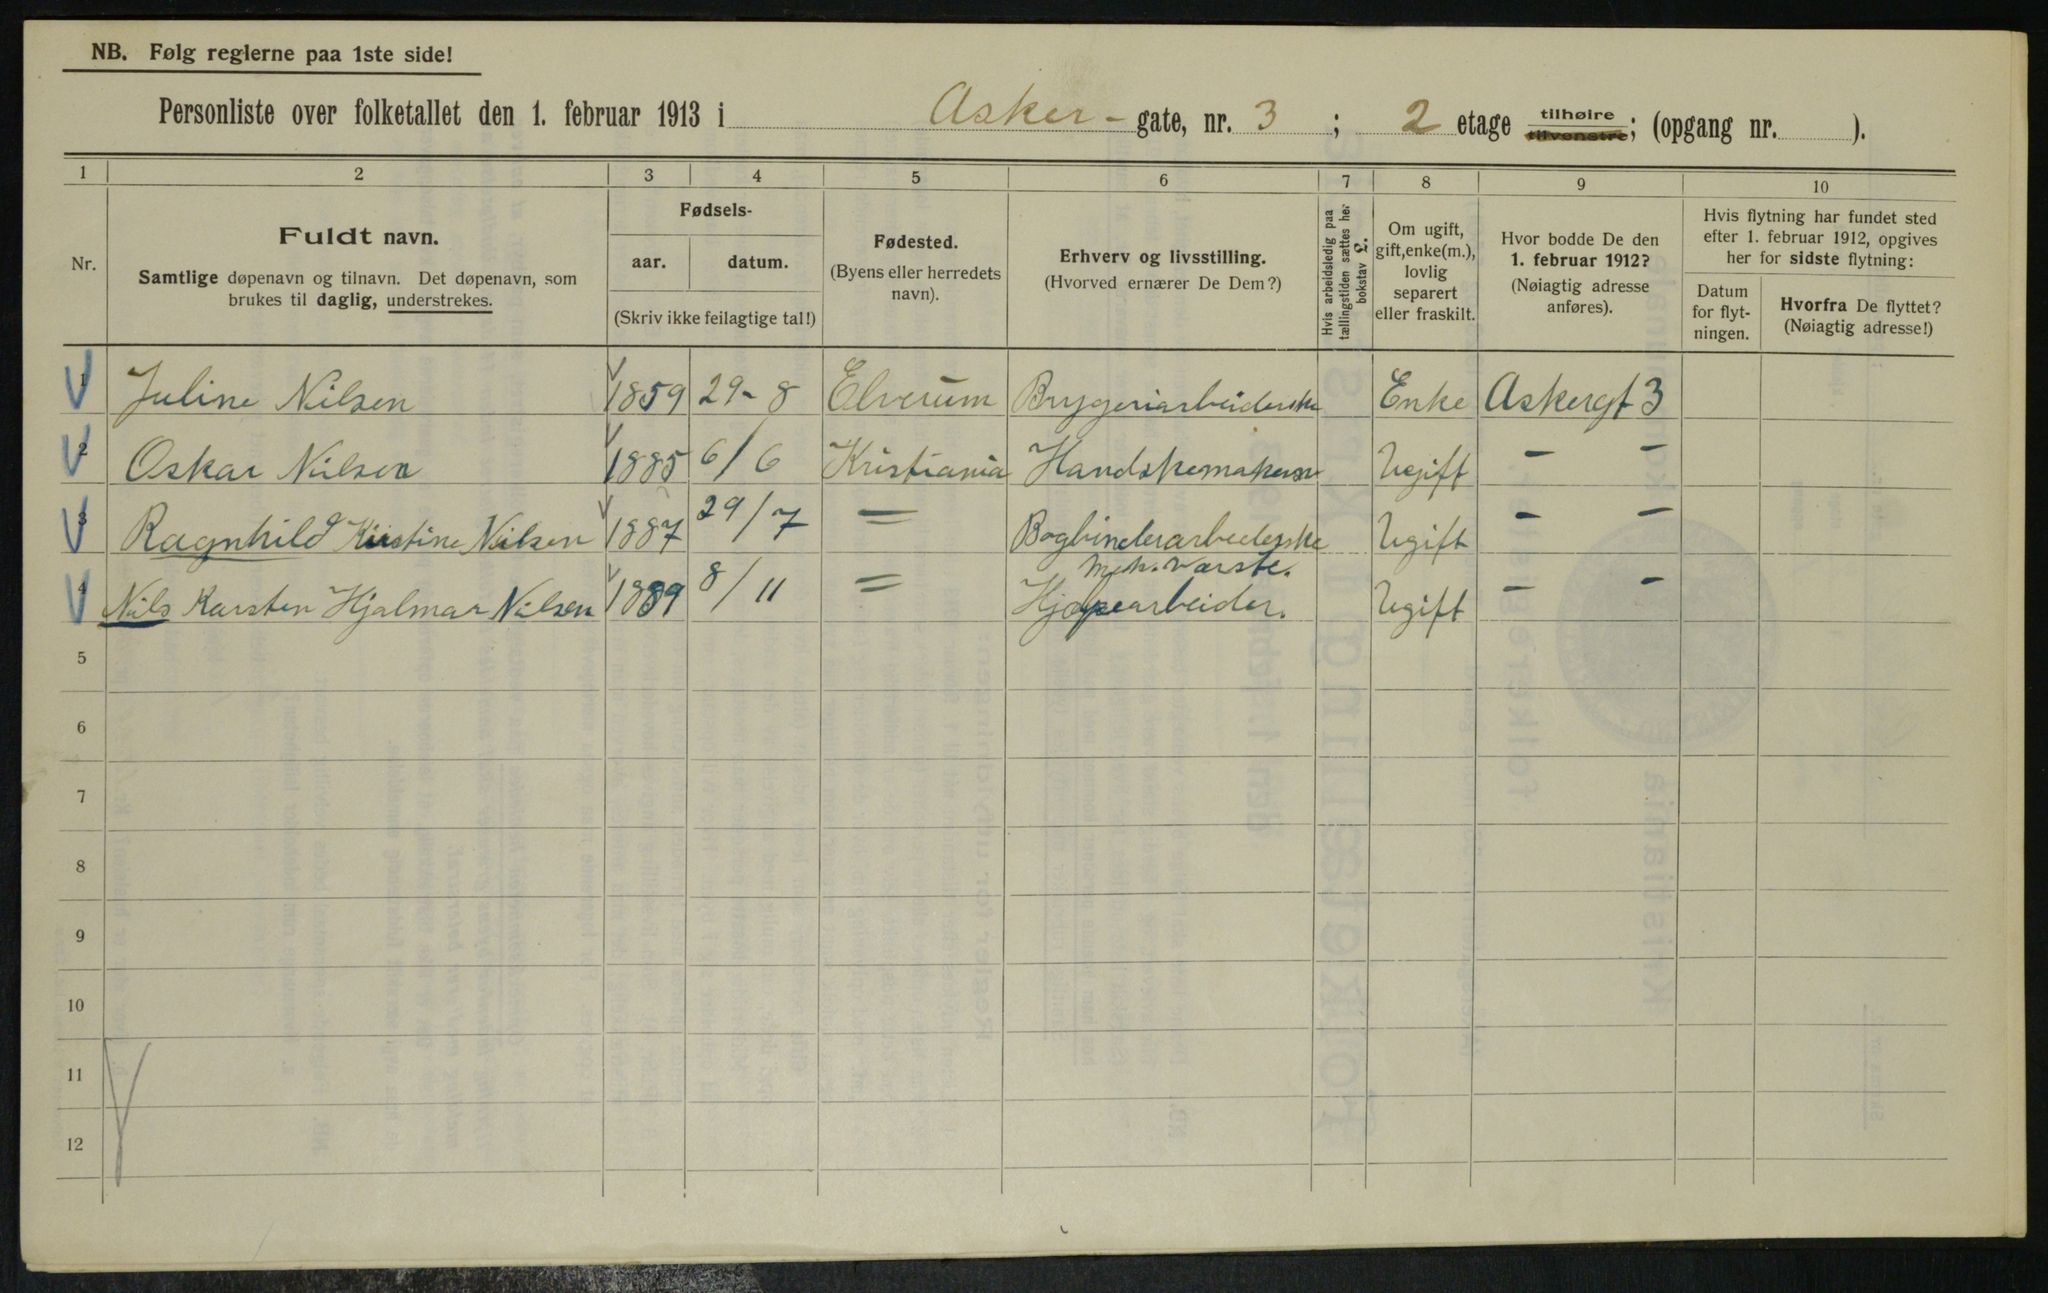 NB. Følg reglerne paa 1ste side!
Personliste over folketallet den 1. februar 1913 i Asker- gate, nr. 3 ; 2 etage tilhøire tilvenstre; (opgang nr. ).
1 2 3 4 5 6 7 8 9 10
Nr.
Fuldt navn.
Samtlige døpenavn og tilnavn. Det døpenavn, som
brukes til daglig, understrekes.
Fødsels-
aar. datum.
(Skriv ikke feilagtige tal!)
Fødested.
(Byens eller herredets
navn).
Erhverv og livsstilling.
(Hvorved ernærer De Dem?)
Hvis arbeidsledig paa
tællingstiden sættes her
bokstav L.
Om ugift,
gift, enke(m.),
lovlig
separert
eller fraskilt.
Hvor bodde De den
1. februar 1912?
(Nøiagtig adresse
anføres).
Hvis flytning har fundet sted
efter 1. februar 1912, opgives
her for sidste flytning:
Datum
for flyt-
ningen.
Hvorfra De flyttet?
(Nøiagtig adresse!)
1 Juline Nilsen 1859 29-8 Elverum Bryggeriarbeiderske Enke Askergt 3
2 Oskar Nilsen 1885 6/6 Kristiania Handskemaker Ugift - -
3 Ragnhild Kirstine Nilsen 1887 29/7 = Bogbinderarbeiderske Ugift - -
Mek. Værste.
4 Nils Karsten Hjalmar Nilsen 1889 8/11 = Ugift - -
5
6
7
8
9
10
11
12